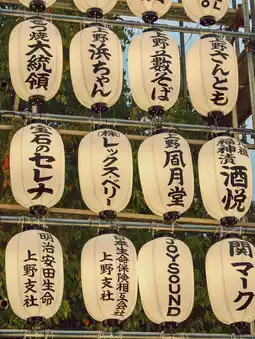 つ焼
大統領
上野
浜ちゃん
上野
藪そば
上野
さんとも
宝石のセレナ
(株)レックスベリー
上野
風月堂
酒悦
明治安田生命
上野支社
日本生命保険相互会社
上野支社
JOYSOUND
関マーク